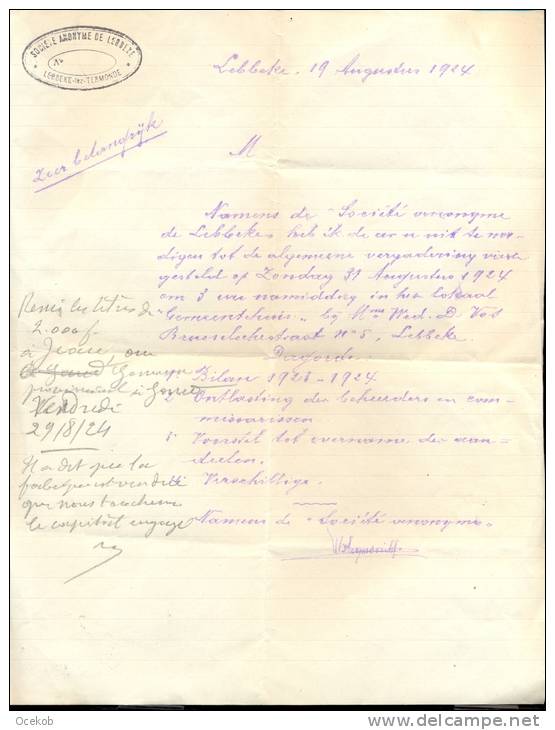 SOCIÉTÉ ANONYME DE LEBBEKE
LEBBEKE-lez-TERMONDE
Lebbeke, 19 Augustus 1924
Zeer belangrijk
M
Namens de "Société anonyme
de Lebbeke" heb ik de eer u uit te noo-
digen tot de algemeene vergadering vast-
gesteld op Zondag 31 Augustus 1924
om 3 ure namiddag in het lokaal
"Gemeentehuis" bij Mme Wed. D. Vos
N° 5, Lebbeke.
Dagorde.
Bilan 1923-1924
2 Ontlasting der beheerders en com-
missarissen
3 Voorstel tot overname der aan-
deelen.
Verschillige.
Namens de "Société anonyme"
Remis les titres de
2.000 f
à
à
Vendredi
29/8/24
Il a dit que la
que nous
le capital engagé
Ocekob
www.delcampe.net